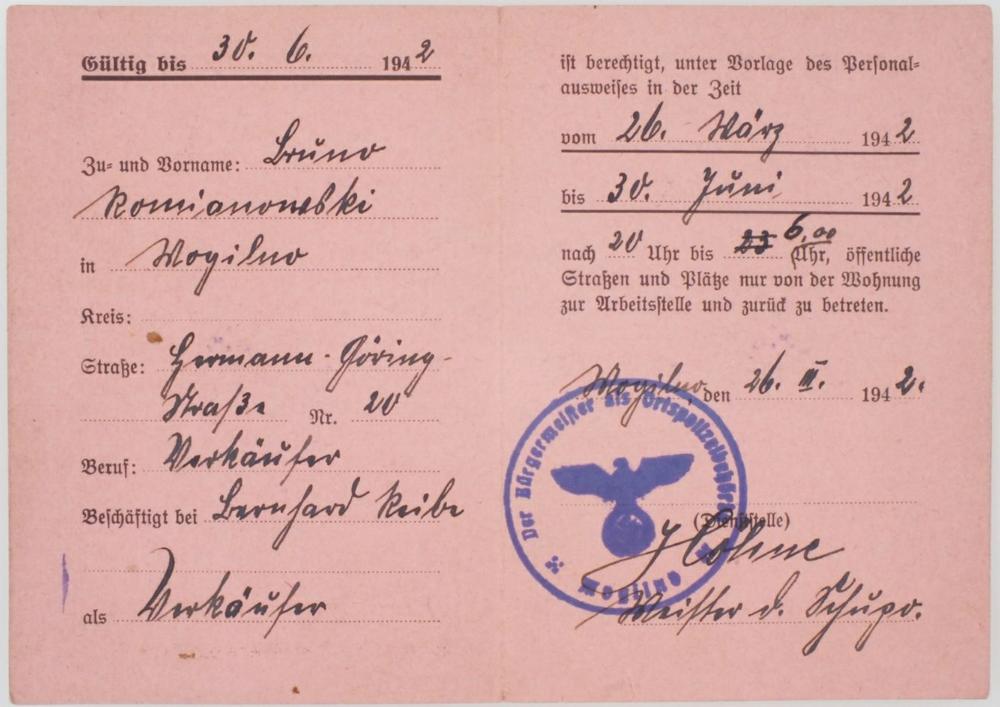 Gültig bis 30. 6. 1942
Zu- und Vorname: Bruno
Romianowski
in Mogilno
Kreis:
Straße: Hermann-Göring-
Straße Nr. 20
Beruf: Verkäufer
Beschäftigt bei Bernhard Reibe
als Verkäufer
ist berechtigt, unter Vorlage des Personal-
ausweises in der Zeit
vom 26. März 1942
bis 30. Juni 1942
nach 20 Uhr bis 23 6,00 Uhr, öffentliche
Straßen und Plätze nur von der Wohnung
zur Arbeitsstelle und zurück zu betreten.
Mogilno, den 26. III. 1942.
Der Bürgermeister als Ortspolizeibehörde
Mogilno
(Dienststelle)
Meister d. Schupo.